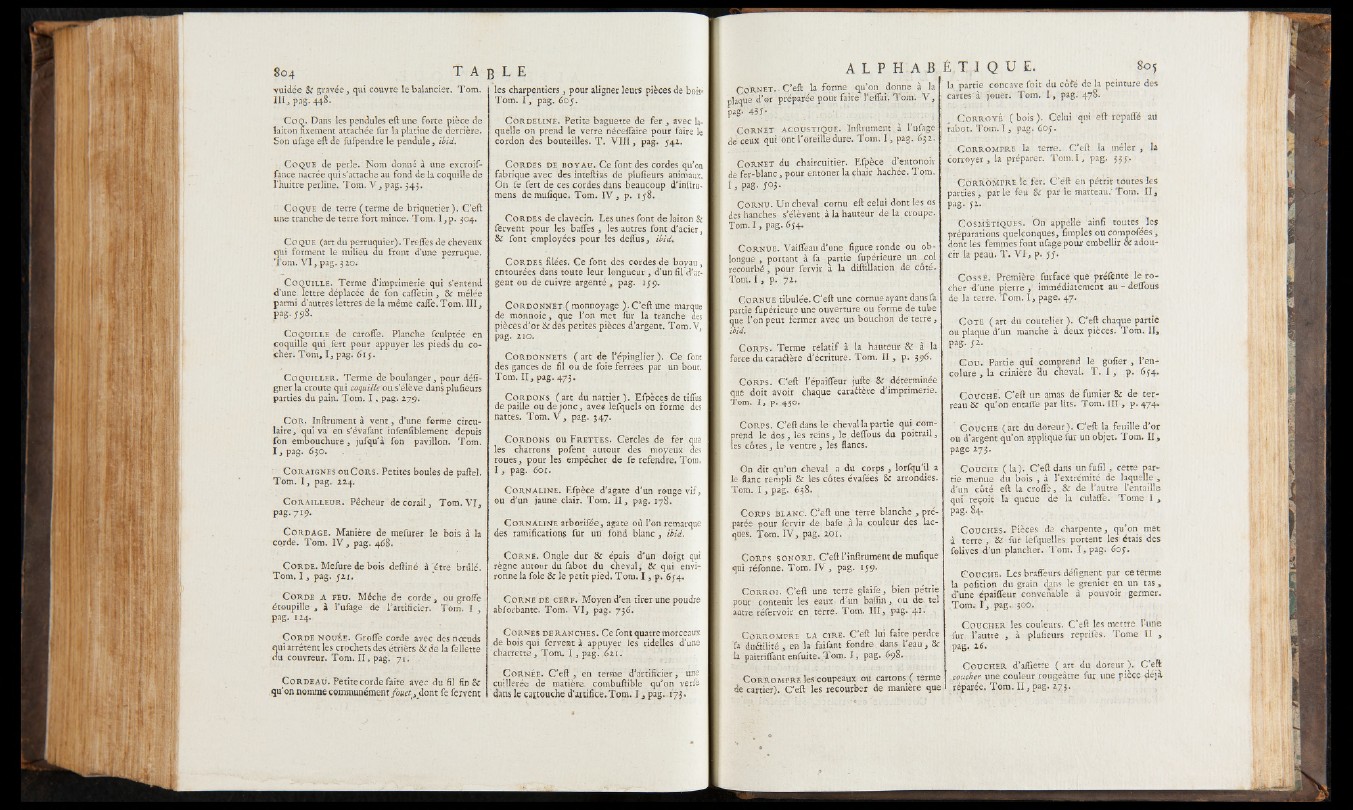 804 TAB LE
vuidée & gravée, qui couvre le balancier. Tom.
III, pag. 448.
COQ. Dans les pendules eſt une forte pièce de
laiton fixement attachée ſur la platine de derrière.
Son uſage eſt de ſuſpendre le pendule, ibid.
COQUE de perle. Nom donné à une excroiſ-
ſance nacrée qui s'attache au fond de la coquille de
l'huitre perline. Tom. V, pag. 343.
COQUE de terre (terme de briquetier). C'eſt
une tranche de terre fort mince. Tom. I, p. 304.
COQUE (art du perruquier). Treſſes de cheveux
qui forment le milieu du front d'une perruque.
Tom. VI, pag. 320.
COQUILLE. Terme d'imprimerie qui s'entend
d'une lettre déplacée de ſon caſſetin, & mêlée
parmi d'autres lettres de la même caſſe. Tom. III,
pag. 598.
COQUILLE de caroſſe. Planche ſculptée en
coquille qui ſert pour appuyer les pieds du co-
cher. Tom, I, pag. 615.
COQUILLER. Terme de boulanger, pour déſi-
gner la croute qui coquille ou s'élève dans pluſieurs
parties du pain. Tom. I, pag. 279.
COR. Inſtrument à vent, d'une forme circu-
laire, qui va en s'évaſant inſenſiblement depuis
ſon embouchure, juſqu'à ſon pavillon. Tom.
I, pag. 630.
CORAIGNES ou CORS. Petites boules de paſtel.
Tom. I, pag. 224.
CORAILLEUR. Pêcheur de corail, Tom. VI,
pag. 719.
CORDAGE. Manière de meſurer le bois à la
corde. Tom. IV, pag. 468.
CORDE. Meſure de bois deſtiné à être brûlé.
Tom. I, pag. 521.
CORDE A FEU. Mêche de corde, ou groſſe
étoupille, à l'uſage de l'artificier. Tom. I,
pag. 124.
CORDE NOUÉE. Groſſe corde avec des nœuds
qui arrêtent les crochets des étriers & de la ſellette
du couvreur. Tom. II, pag. 71.
CORDEAU. Petite corde faite avec du fil fin &
qu'on nomme communément fouet, dont ſe ſervent
les charpentiers, pour aligner leurs pièces de bois
Tom. I, pag. 605.
CORDELINE. Petite baguette de fer, avec la-
quelle on prend le verre néceſſaire pour faire le
cordon des bouteilles. T. VIII, pag. 542.
CORDES DE BOYAU. Ce ſont des cordes qu'on
fabrique avec des inteſtins de pluſieurs animaux.
On ſe ſert de ces cordes dans beaucoup d'inſtru-
mens de muſique. Tom. IV, p. 158.
CORDES de clavecin. Les unes ſont de laiton &
ſervent pour les baſſes, les autres ſont d'acier,
& ſont employées pour les deſſus, ibid.
CORDES filées. Ce ſont des cordes de boyau,
entourées dans toute leur longueur, d'un fil d'ar-
gent ou de cuivre argenté, pag. 159.
CORDONNET (monnoyage). C'eſt une marque
de monnoie, que l'on met ſur la tranche des
pièces d'or & des petites pièces d'argent. Tom. V,
pag. 210.
CORDONNETS (art de l'épinglier). Ce ſont
des gances de fil ou de ſoie ferrées par un bout.
Tom. II, pag. 473.
CORDONS (art du nattier). Eſpèces de tiſſus
de paille ou de jonc, avec leſquels on forme des
nattes. Tom. V, pag. 347.
CORDONS ou FRETTES. Cercles de fer que
les charrons poſent autour des moyeux des
roues, pour les empêcher de ſe refendre. Tom.
I, pag. 601.
CORNALINE. Eſpèce d'agate d'un rouge vif,
ou d'un jaune clair. Tom. II, pag. 178.
CORNALINE arboriſée, agate où l'on remarque
des ramifications ſur un fond blanc, ibid.
CORNE. Ongle dur & épais d'un doigt qui
règne autour du ſabot du cheval, & qui envi-
ronne la ſole & le petit pied. Tom. I, p. 654.
CORNE DE CERF. Moyen d'en tirer une poudre
abſorbante. Tom. VI, pag. 736.
CORNES DE RANCHES. Ce ſont quatre morceaux
de bois qui ſervent à appuyer les ridelles d'une
charrette, Tom. I, pag. 621.
CORNET. C'eſt, en terme d'artificier, une
cuillerée de matière combuſtible qu'on verſe
dans le cartouche d'artifice. Tom. I, pag. 173.
ALPHABÉTIQUE. 805
CORNET. C'eſt la forme qu'on donne à la
plaque d'or préparée pour faire l'eſſai. Tom. V,
pag. 435.
CORNET ACOUSTIQUE. Inſtrument à l'uſage
de ceux qui ont l'oreille dure. Tom. I, pag. 632.
CORNET du chaircuitier. Eſpèce d'entonoir
de fer-blanc, pour entoner la chair hachée. Tom.
I, pag. 503.
CORNU. Un cheval cornu eſt celui dont les os
des hanches s'élèvent à la hauteur de la croupe.
Tom. I, pag. 654.
CORNUE. Vaiſſeau d'une figure ronde ou ob-
longue, portant à ſa partie ſupérieure un col
recourbé, pour ſervir à la diſtillation de côté.
Tom. I, p. 72.
CORNUE tibulée. C'eſt une cornue ayant dans ſa
partie ſupérieure une ouverture ou forme de tube
que l'on peut fermer avec un bouchon de terre,
ibid.
CORPS. Terme relatif à la hauteur & à la
force du caractère d'écriture. Tom. II, p. 396.
CORPS. C'eſt l'épaiſſeur juſte & déterminée
que doit avoir chaque caractère d'imprimerie.
Tom. I, p. 450.
CORPS. C'eſt dans le cheval la partie qui com-
prend le dos, les reins, le deſſous du poitrail,
les côtes, le ventre, les flancs.
On dit qu'un cheval a du corps, lorſqu'il a
le flanc rempli & les côtes évaſées & arrondies.
Tom. I, pag. 638.
CORPS BLANC. C'eſt une terre blanche, pré-
parée pour ſervir de baſe à la couleur des lac-
ques. Tom. IV, pag. 201.
CORPS SONORE. C'eſt l'inſtrument de muſique
qui réſonne. Tom. IV, pag. 159.
CORROI. C'eſt une terre glaiſe, bien pétrie
pour contenir les eaux d'un baſſin, ou de tel
autre réſervoir en terre. Tom. III, pag. 41.
CORROMPRE LA CIRE. C'eſt lui faire perdre
ſa ductilité, en la faiſant fondre dans l'eau, &
la paitriſſant enſuite. Tom. I, pag. 698.
CORROMPRE les coupeaux ou cartons (terme
de cartier). C'eſt les recourber de manière que
la partie concave ſoit du côté de la peinture des
cartes à jouer. Tom. I, pag. 478.
CORROYÉ (bois). Celui qui eſt repaſſé au
rabot. Tom. I, pag. 605.
CORROMPRE la terre. C'eſt la mêler, la
corroyer, la préparer. Tom. I, pag. 333.
CORROMPRE le fer. C'eſt en pétrir toutes les
parties, par le feu & par le marteau. Tom. II,
pag. 52.
COSMÉTIQUES. On appelle ainſi toutes les
préparations quelconques, ſimples ou compoſées,
dont les femmes font uſage pour embellir & adou-
cir la peau. T. VI, p. 55.
COSSE. Première ſurface que préſente le ro-
cher d'une pierre, immédiatement au-deſſous
de la terre. Tom. I, page. 47.
COTE (art du coutelier). C'eſt chaque partie
ou plaque d'un manche à deux pièces. Tom. II,
pag. 52.
COU. Partie qui comprend le goſier, l'en-
colure, la crinière du cheval. T. I, p. 654.
COUCHE. C'eſt un amas de fumier & de ter-
reau & qu'on entaſſe par lits. Tom. III, p. 474.
COUCHE (art du doreur). C'eſt la feuille d'or
ou d'argent qu'on applique ſur un objet. Tom. II,
page 273.
COUCHE (la). C'eſt dans un fuſil, cette par-
tie menue du bois, à l'extrémité de laquelle,
d'un côté eſt la croſſe, & de l'autre l'entaille
qui reçoit la queue de la culaſſe. Tome I,
pag. 84.
COUCHES. Pièces de charpente, qu'on met
à terre, & ſur leſquelles portent les étais des
ſolives d'un plancher. Tom. I, pag. 605.
COUCHE. Les braſſeurs déſignent par ce terme
la poſition du grain dans le grenier en un tas,
d'une épaiſſeur convenable à pouvoir germer.
Tom. I, pag. 300.
COUCHER les couleurs. C'eſt les mettre l'une
ſur l'autre, à pluſieurs repriſes. Tome II,
pag. 26.
COUCHER d'aſſiette (art du doreur). C'eſt
coucher une couleur rougeâtre ſur une pièce déjà
réparée. Tom. II, pag. 273.